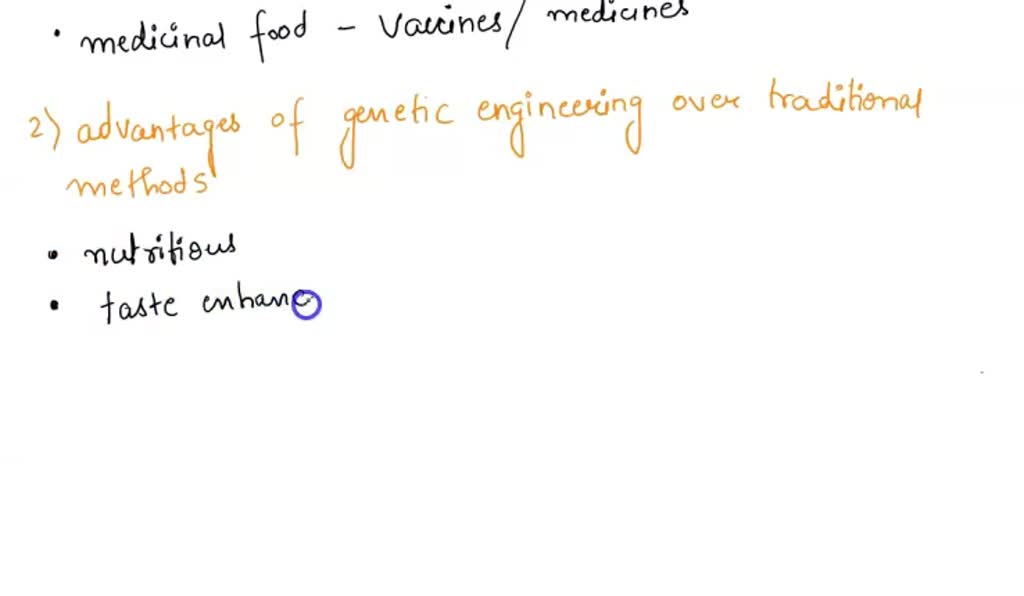 • medicinal food - vaccines/ medicines
2) advantages of genetic engineering over traditional
methods
• nutritious
• taste enhanc